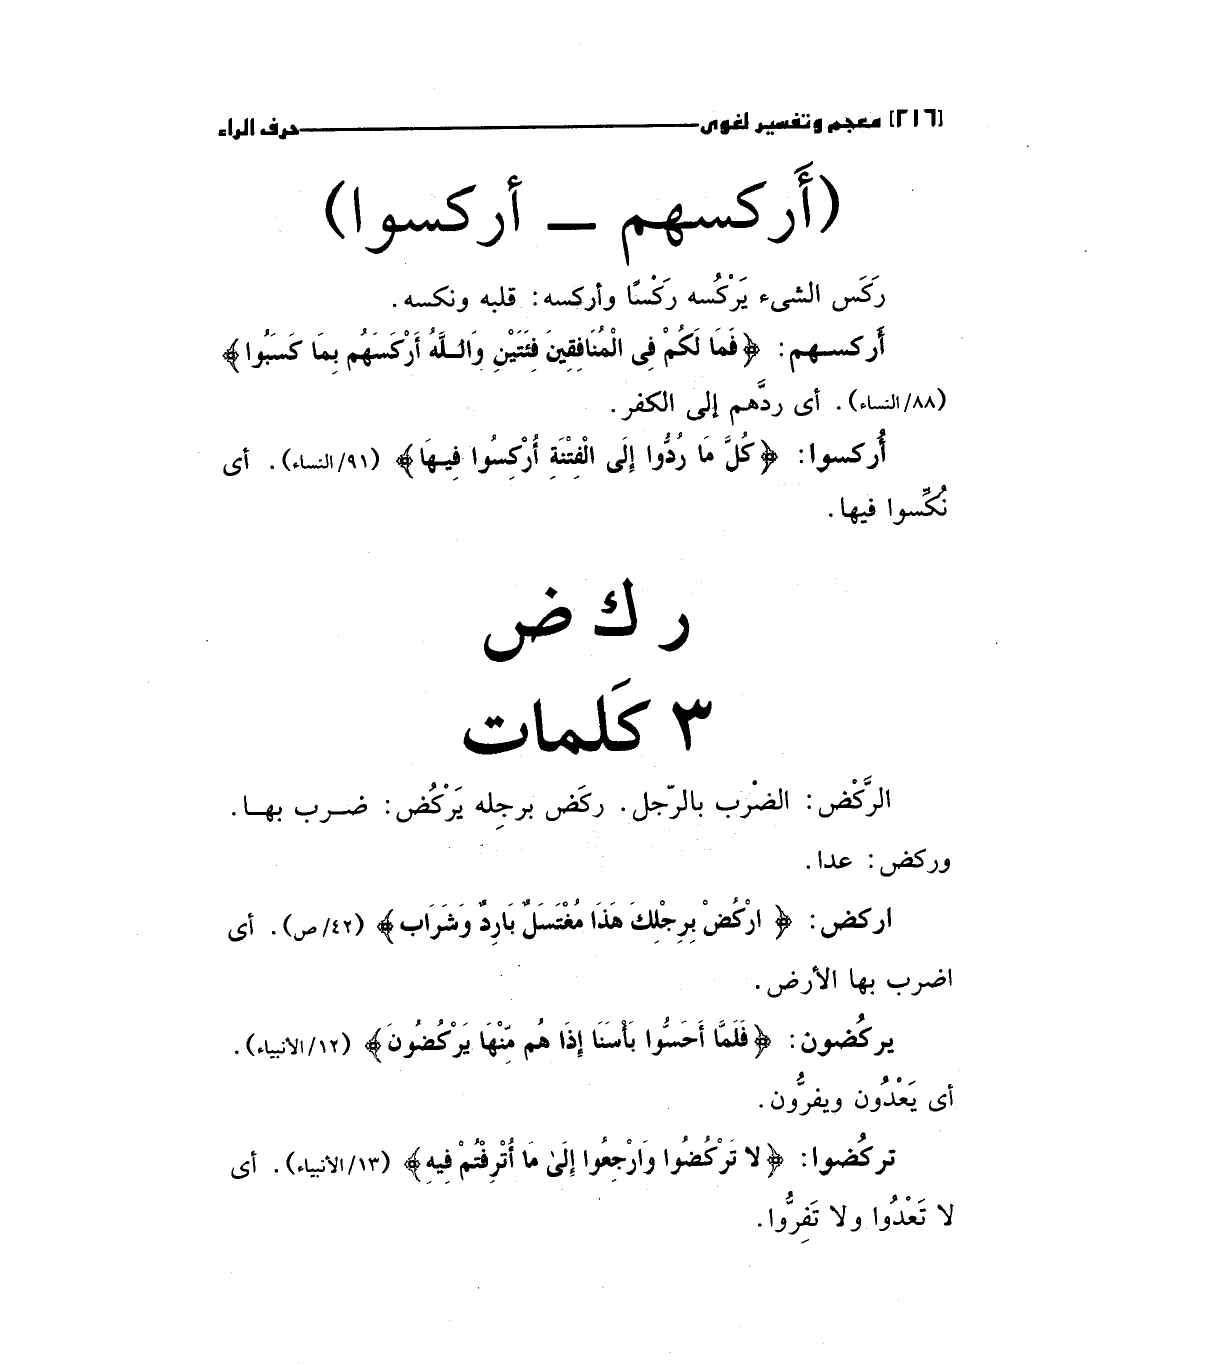 [٢١٦] معجم وتفسير لغوى حرف الراء
(أَركسهم ــ أركسوا)
ركَسَ الشىء يَرْكُسه ركْسًا وأركسه: قلبه ونكسه.
أَركسهم: ﴿فَمَا لَكُمْ فِى الْمُنَافِقِينَ فِئَتَيْنِ وَاللَّهُ أَرْكَسَهُم بِمَا كَسَبُوا﴾
(٨٨/النساء). أى ردَّهم إلى الكفر.
أُركسوا: ﴿كُلَّ مَا رُدُّوا إِلَى الْفِتْنَةِ أُرْكِسُوا فِيهَا﴾ (٩١/النساء). أى
نُكِّسوا فيها.
ر ك ض
٣ كَلمات
الرَّكْض: الضرْب بالرّجل. ركَض برجِله يَرْكُض: ضرب بها.
وركض: عدا.
اركض: ﴿ارْكُضْ بِرِجْلِكَ هَذَا مُغْتَسَلٌ بَارِدٌ وَشَرَاب﴾ (٤٢/ص). أى
اضرب بها الأرض.
يركُضون: ﴿فَلَمَّا أَحَسُّوا بَأْسَنَا إِذَا هُم مِّنْهَا يَرْكُضُونَ﴾ (١٢/الأنبياء).
أى يَعْدُون ويفرُّون.
تركُضوا: ﴿لا تَرْكُضُوا وَارْجِعُوا إِلَىٰ مَا أُتْرِفْتُمْ فِيهِ﴾ (١٣/الأنبياء). أى
لا تَعْدُوا ولا تَفِرُّوا.